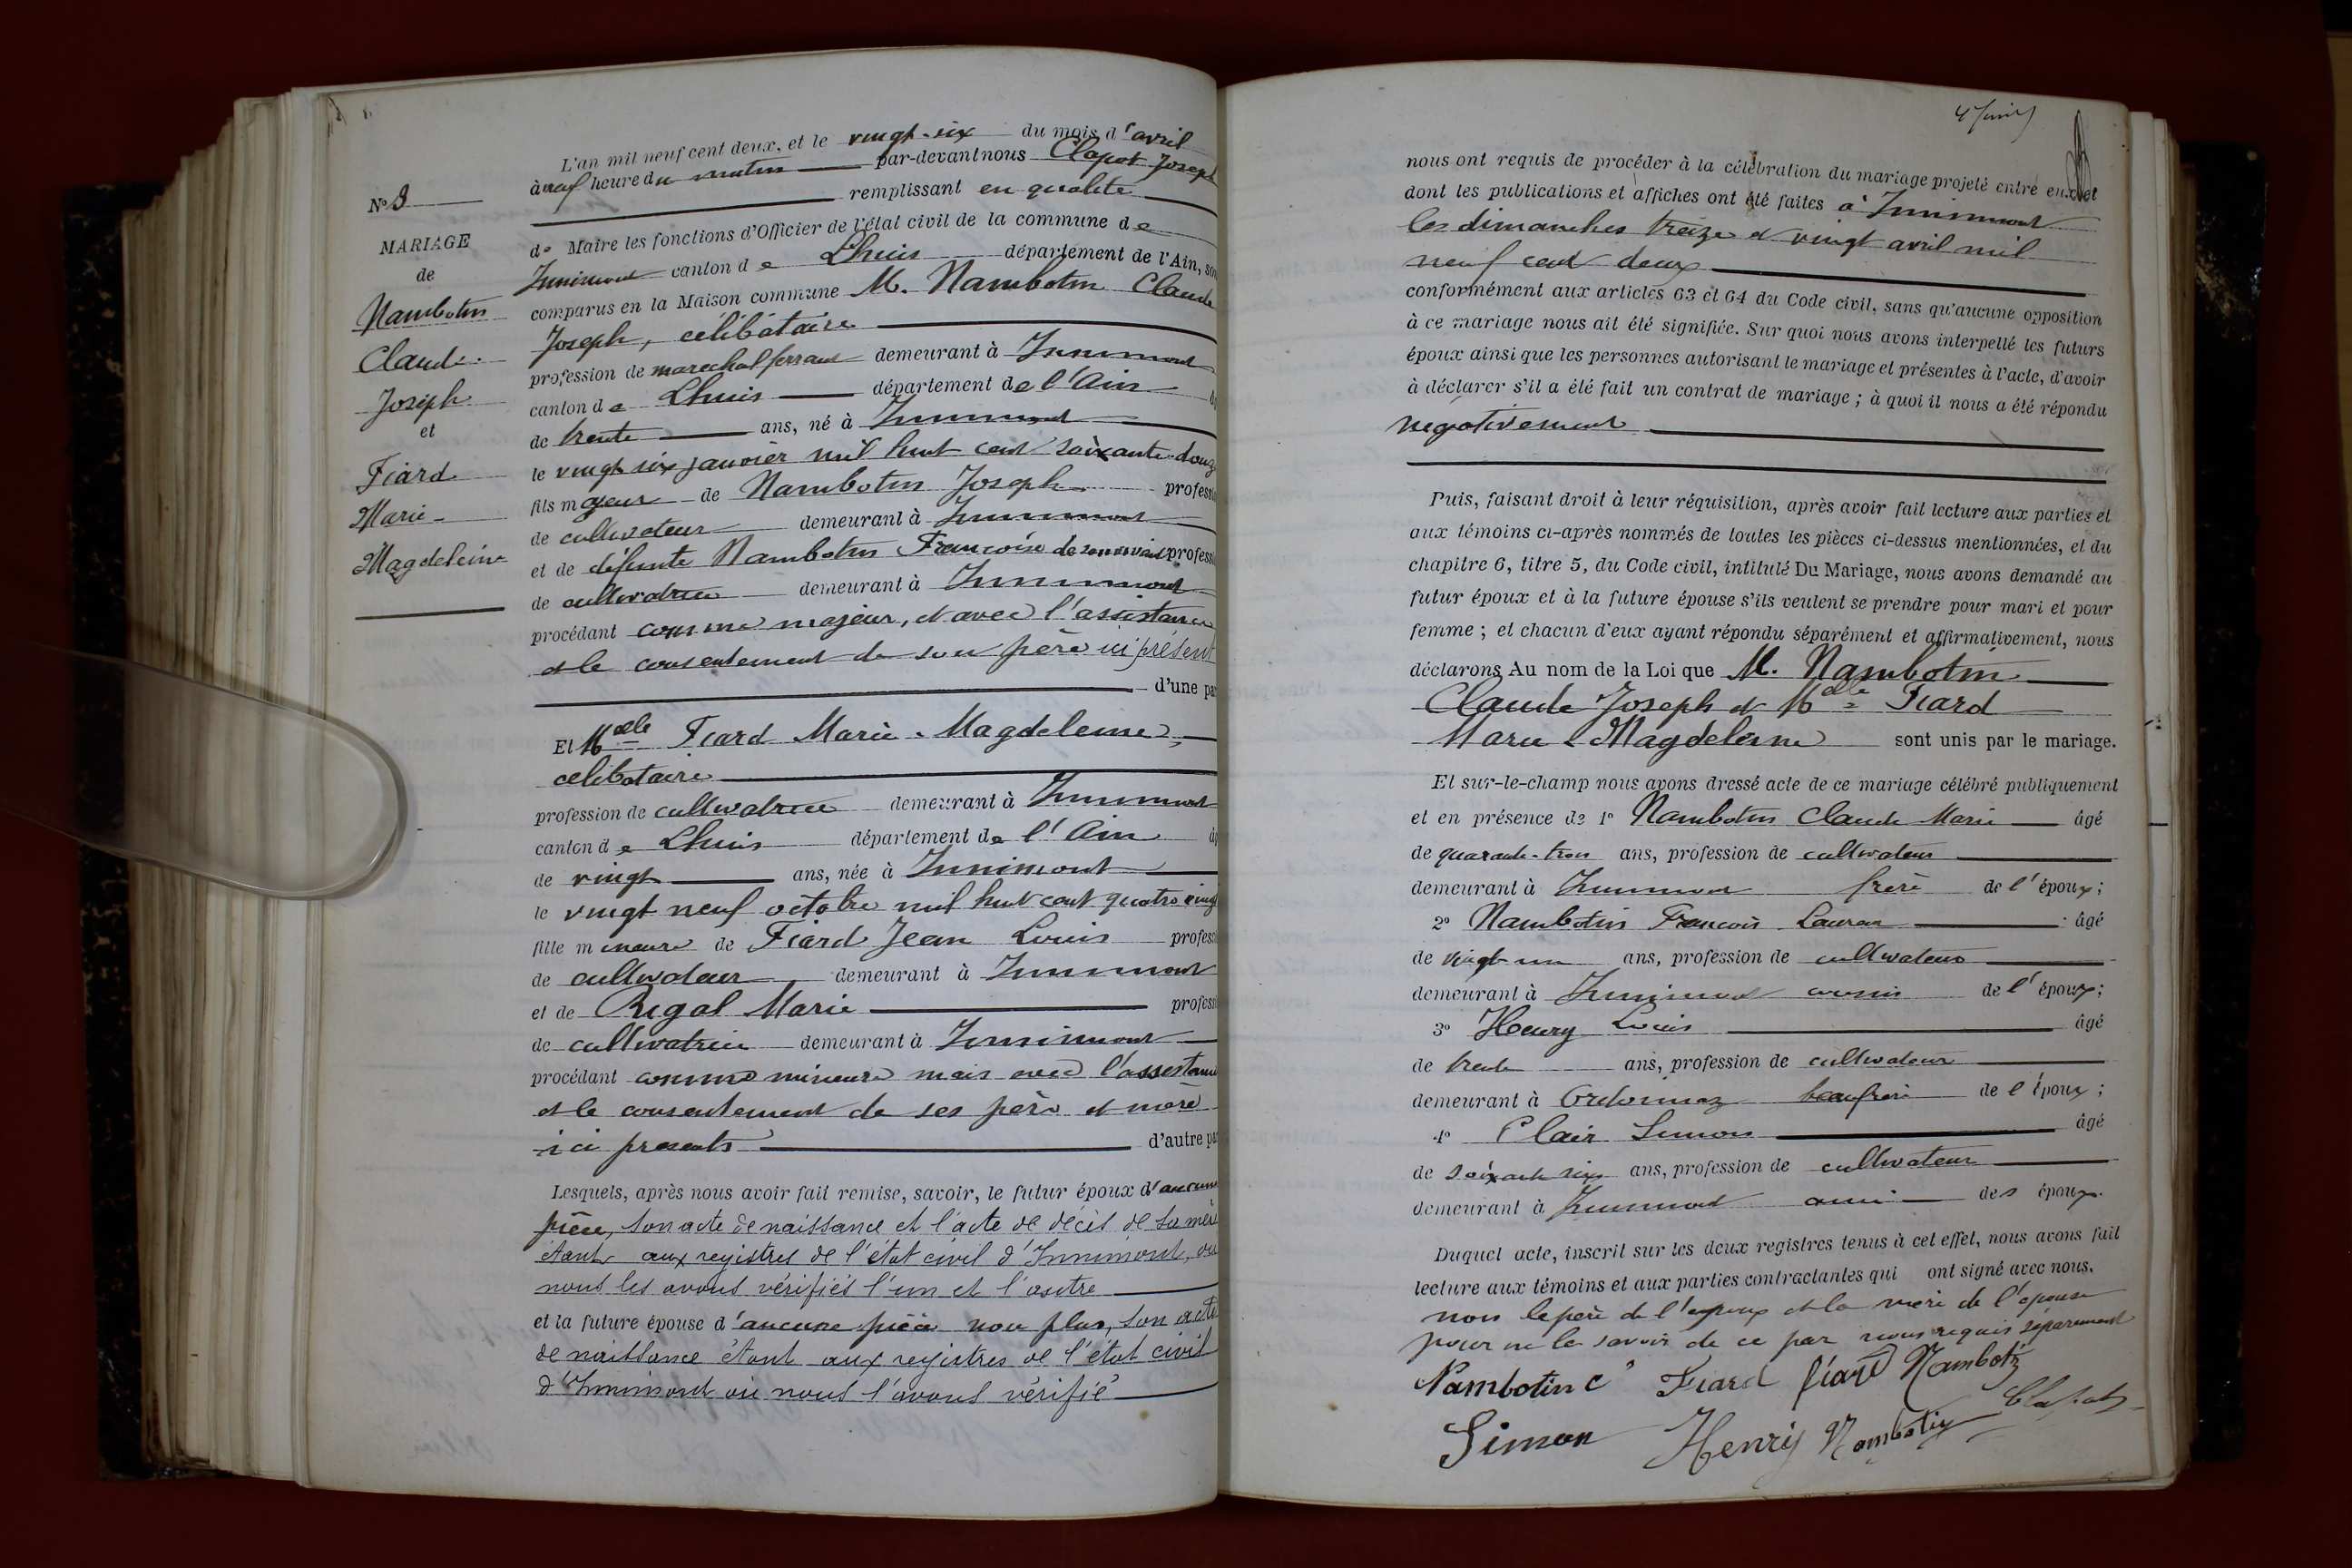 N° 3
MARIAGE
de
Nambotin
Claude
Joseph
et
Fiard
Marie-
Magdeleine
L'an mil neuf cent deux, et le vingt-six du mois d'avril
à neuf heure du matin par-devant nous Clapot Joseph
remplissant en qualité
de Maire les fonctions d'Officier de l'état civil de la commune de
Innimont canton de Lhuis département de l'Ain, son
comparus en la Maison commune M. Nambotin Claude
Joseph, célibataire
profession de marechal ferrant demeurant à Innimont
canton de Lhuis département de l'Ain
de trente ans, né à Innimont
le vingt six janvier mil huit cent soixante-douze
fils majeur de Nambotin Joseph professi
de cultivateur demeurant à Innimont
et de défunte Nambotin Francoise de son vivant professi
de cultivatrice demeurant à Innimont
procédant comme majeur, et avec l'assistance
et le consentement de son père ici présent
d'une par
Et Melle Fiard Marie-Magdeleine,
celibataire
profession de cultivatrice demeurant à Innimont
canton de Lhuis département de l'Ain âg
de vingt ans, née à Innimont
le vingt neuf octobre mil huit cent quatre vingt
fille mineure de Fiard Jean Louis professi
de cultivateur demeurant à Innimont
et de Rigal Marie professi
de cultivatrice demeurant à Innimont
procédant comme mineure mais avec l'assistance
et le consentement de ses père et mère
ici presents d'autre par
Lesquels, après nous avoir fait remise, savoir, le futur époux d'aucune
pièce, son acte de naissance et l'acte de décès de sa mère
étant aux registres de l'état civil d'Innimont, où
nous les avons vérifiés l'un et l'autre
et la future épouse d'aucune pièce non plus, son acte
de naissance étant aux registres de l'état civil
d'Innimont où nous l'avons vérifié
nous ont requis de procéder à la célébration du mariage projeté entre eux et
dont les publications et affiches ont été faites à Innimont
les dimanches treize et vingt avril mil
neuf cent deux
conformément aux articles 63 et 64 du Code civil, sans qu'aucune opposition
à ce mariage nous ait été signifiée. Sur quoi nous avons interpellé les futurs
époux ainsi que les personnes autorisant le mariage et présentes à l'acte, d'avoir
à déclarer s'il a été fait un contrat de mariage ; à quoi il nous a été répondu
négativement
Puis, faisant droit à leur réquisition, après avoir fait lecture aux parties et
aux témoins ci-après nommés de toutes les pièces ci-dessus mentionnées, et du
chapitre 6, titre 5, du Code civil, intitulé Du Mariage, nous avons demandé au
futur époux et à la future épouse s'ils veulent se prendre pour mari et pour
femme ; et chacun d'eux ayant répondu séparément et affirmativement, nous
déclarons Au nom de la Loi que M. Nambotin
Claude Joseph et Melle Fiard
Marie Magdeleine sont unis par le mariage.
Et sur-le-champ nous avons dressé acte de ce mariage célébré publiquement
et en présence de 1° Nambotin Claude Marie âgé
de quarante-trois ans, profession de cultivateur
demeurant à Innimont frère de l'époux ;
2° Nambotin François âgé
de vingt-un ans, profession de cultivateur
demeurant à Innimont cousin de l'époux ;
3° Henry Louis âgé
de trente ans, profession de cultivateur
demeurant à Ordonnaz beaufrère de l'époux ;
4° Clair Simon âgé
de soixante six ans, profession de cultivateur
demeurant à Innimont ami des époux.
Duquel acte, inscrit sur les deux registres tenus à cet effet, nous avons fait
lecture aux témoins et aux parties contractantes qui ont signé avec nous.
non le père de l'époux et la mère de l'épouse
pour ne le savoir de ce par nous requis séparément
Nambotin C Fiard fiard Nambotin
Simon Henry Nambotin Clapot